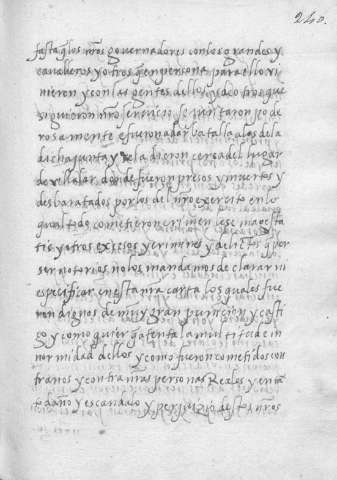 240.
fasta q̃ los nr̃os governadores con los grandes y
cavalleros y otros q̃ en persona para ello vi
nieron y con las gentes de los de otros que
siguieron nr̃o servicio se juntaron po de
rosa mente e fueron a dar batalla a los de la
dicha junta y se la dieron cerca del lugar
de villalar donde fueron presos y muertos y
desbaratados por los del nr̃o exercito en lo
qual todo cometieron crimen lese magesta
tis y otros excesos y crimines y delictos q̃ por
ser notorios no los mandamos declarar ni
especificar en esta nr̃a carta los quales fue
ron dignos de muy gran punicion y casti
go y como quier q̃ atenta la multitud e in
normidad dellos y como fueron cometidos con
tra nos y contra nr̃as personas Reales y en tã
to daño y escandalo y perjuizio destos nr̃os